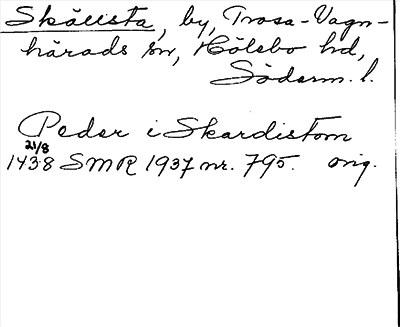 Skällsta, by, Trosa-Vagn-
härads sn, Hölebo hd,
Söderm. l.
Peder i Skardistom
21/8
1438 SMR 1937 nr. 795. orig.